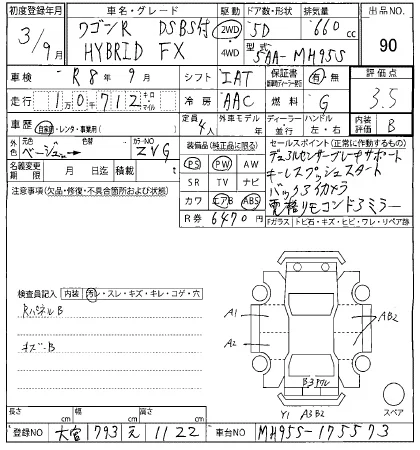 初度登録年月 車名・グレード 駆動 ドア数・形状 排気量 出品NO.
3/9月 ワゴンR DSBS付 2WD 5D 660cc 90
HYBRID FX 4WD 型式 5AA-MH95S
車検 R8年9月 シフト IAT 保証書 有・無 評価点
走行 1万0千712 キロ マイル 冷房 AAC 燃料 G 3.5
車歴 自家・レンタ・事業用( ) 定員 4人 外車モデル 年 ディーラー 並行 ハンドル 左・右 内装評価 B
外色 元色 ベージュ 色替 カラーNO ZVG 装備品(純正品に限る) セールスポイント(正常に作動するもの)
名義変更期限 月 日迄 積載 t PS PW AW デュアルセンサーブレーキサポート
注意事項(欠品・修復・不具合箇所および状態) SR TV ナビ キーレスプッシュスタート
カワ エアB ABS バックアイカメラ
R券 6470円 電格リモコンドアミラー
Fガラス トビ石・キズ・ヒビ・ワレ・リペア跡
検査員記入 内装 汚レ・スレ・キズ・キレ・コゲ・穴
RパネルB
キズ-B
A1
AB2
A2
B3
Y1 A3B2
スペア
長さ cm 幅 cm 高さ cm
登録NO 大宮 793 え 1122 車台NO MH95S-175573